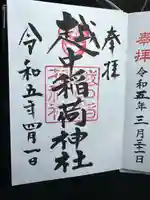 奉拝
越中稲荷神社
令和五年四月一日
奉拝
令和五年三月三十一日